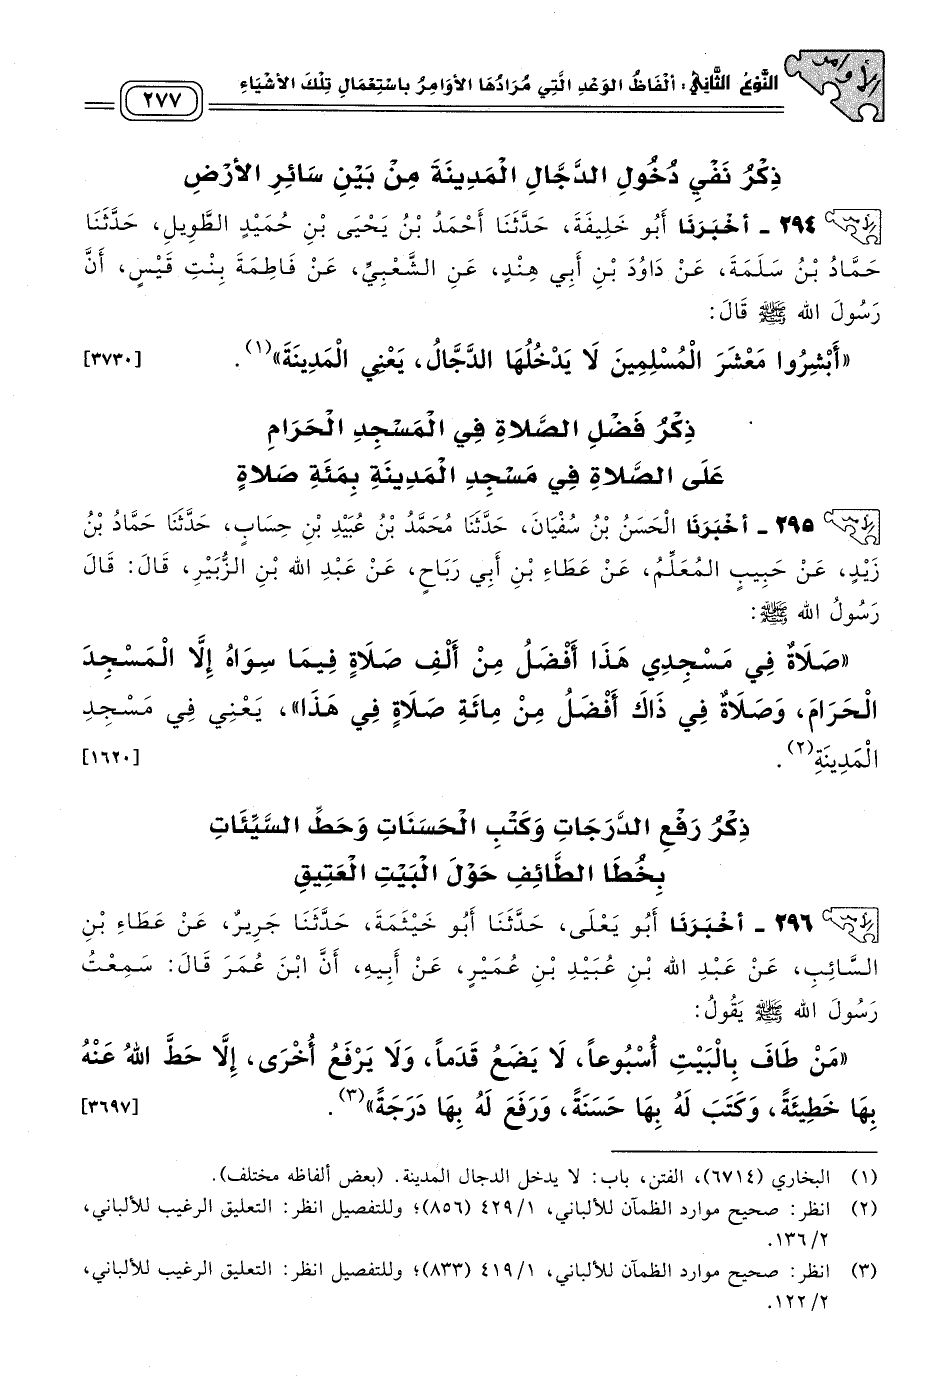 الأوامر
النَّوْعُ الثَّانِي: ألْفَاظُ الوَعْدِ الَّتِي مُرَادُهَا الأوَامِرُ بِاسْتِعْمَالِ تِلْكَ الأشْيَاءِ
٢٧٧
ذِكْرُ نَفْيِ دُخُولِ الدَّجَّالِ الْمَدِينَةَ مِنْ بَيْنِ سَائِرِ الأرْضِ
٢٩٤ - أخْبَرَنَا أَبُو خَلِيفَةَ، حَدَّثَنَا أَحْمَدُ بْنُ يَحْيَى بْنِ حُمَيْدٍ الطَّوِيلِ، حَدَّثَنَا
حَمَّادُ بْنُ سَلَمَةَ، عَنْ دَاوُدَ بْنِ أَبِي هِنْدٍ، عَنِ الشَّعْبِيِّ، عَنْ فَاطِمَةَ بِنْتِ قَيْسٍ، أَنَّ
رَسُولَ الله ﷺ قَالَ:
«أَبْشِرُوا مَعْشَرَ الْمُسْلِمِينَ لَا يَدْخُلُهَا الدَّجَّالُ، يَعْنِي الْمَدِينَةَ»(١). [٣٧٣٠]
ذِكْرُ فَضْلِ الصَّلاةِ فِي الْمَسْجِدِ الْحَرَامِ
عَلَى الصَّلاةِ فِي مَسْجِدِ الْمَدِينَةِ بِمَئَةِ صَلاةٍ
٢٩٥ - أخْبَرَنَا الْحَسَنُ بْنُ سُفْيَانَ، حَدَّثَنَا مُحَمَّدُ بْنُ عُبَيْدِ بْنِ حِسَابٍ، حَدَّثَنَا حَمَّادُ بْنُ
زَيْدٍ، عَنْ حَبِيبٍ الْمُعَلِّمُ، عَنْ عَطَاءِ بْنِ أَبِي رَبَاحٍ، عَنْ عَبْدِ الله بْنِ الزُّبَيْرِ، قَالَ: قَالَ
رَسُولُ الله ﷺ:
«صَلَاةٌ فِي مَسْجِدِي هَذَا أَفْضَلُ مِنْ أَلْفِ صَلَاةٍ فِيمَا سِوَاهُ إِلَّا الْمَسْجِدَ
الْحَرَامَ، وَصَلَاةٌ فِي ذَاكَ أَفْضَلُ مِنْ مِائَةِ صَلَاةٍ فِي هَذَا»، يَعْنِي فِي مَسْجِدِ
الْمَدِينَةِ(٢). [١٦٢٠]
ذِكْرُ رَفْعِ الدَّرَجَاتِ وَكَتْبِ الْحَسَنَاتِ وَحَطِّ السَّيِّئَاتِ
بِخُطَا الطَّائِفِ حَوْلَ الْبَيْتِ الْعَتِيقِ
٢٩٦ - أخْبَرَنَا أَبُو يَعْلَى، حَدَّثَنَا أَبُو خَيْثَمَةَ، حَدَّثَنَا جَرِيرٌ، عَنْ عَطَاءِ بْنِ
السَّائِبِ، عَنْ عَبْدِ الله بْنِ عُبَيْدِ بْنِ عُمَيْرٍ، عَنْ أَبِيهِ، أَنَّ ابْنَ عُمَرَ قَالَ: سَمِعْتُ
رَسُولَ الله ﷺ يَقُولُ:
«مَنْ طَافَ بِالْبَيْتِ أُسْبُوعاً، لَا يَضَعُ قَدَماً، وَلَا يَرْفَعُ أُخْرَى، إِلَّا حَطَّ اللهُ عَنْهُ
بِهَا خَطِيئَةً، وَكَتَبَ لَهُ بِهَا حَسَنَةً، وَرَفَعَ لَهُ بِهَا دَرَجَةً»(٣). [٣٦٩٧]
(١) البخاري (٦٧١٤)، الفتن، باب: لا يدخل الدجال المدينة. (بعض ألفاظه مختلف).
(٢) انظر: صحيح موارد الظمآن للألباني، ٤٢٩/١ (٨٥٦)؛ وللتفصيل انظر: التعليق الرغيب للألباني،
١٣٦/٢.
(٣) انظر: صحيح موارد الظمآن للألباني، ٤١٩/١ (٨٣٣)؛ وللتفصيل انظر: التعليق الرغيب للألباني،
١٢٢/٢.